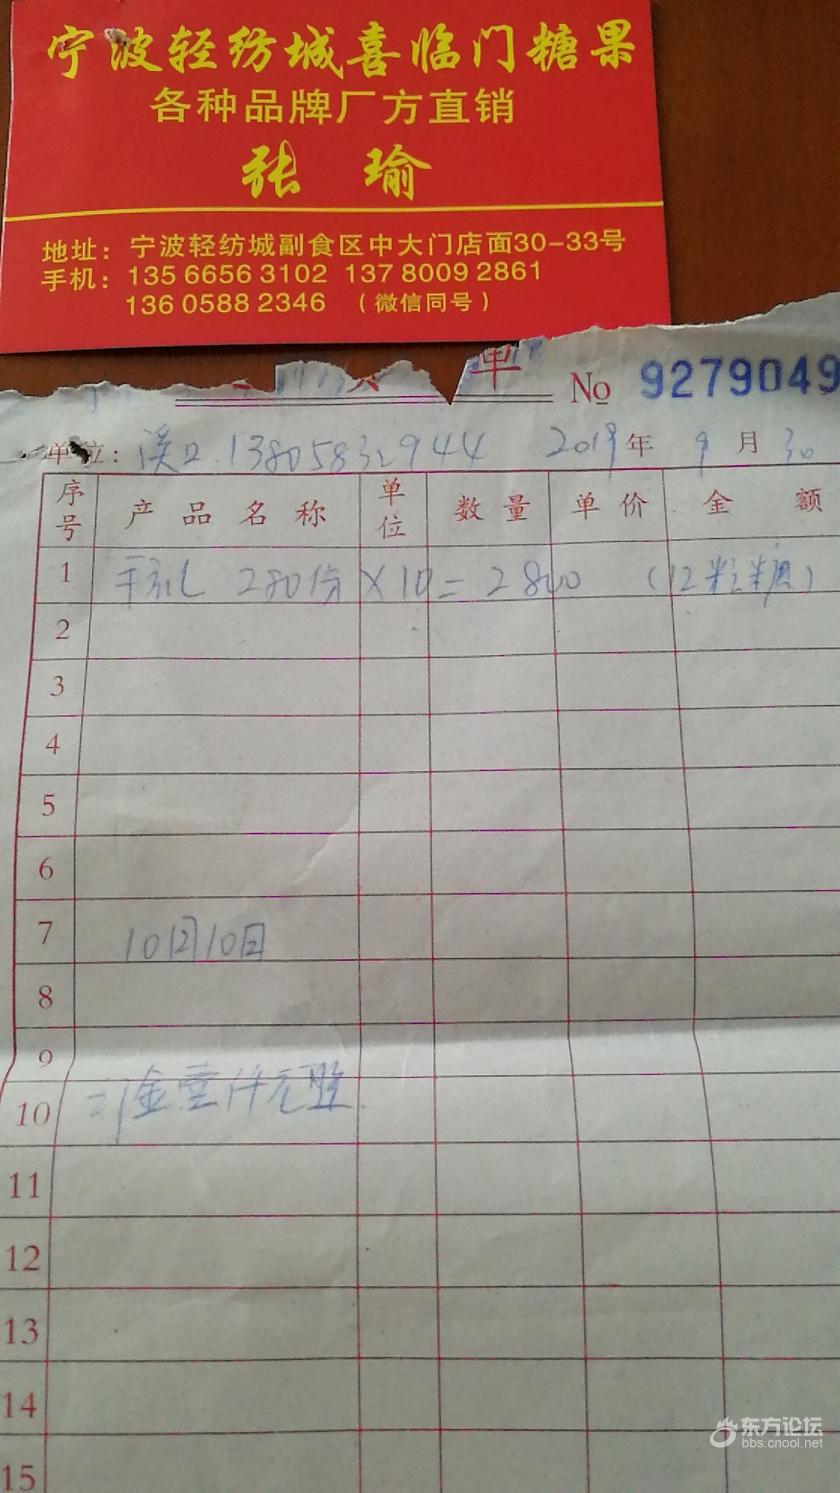 宁波轻纺城喜临门糖果
各种品牌厂方直销
张 瑜
地址：宁波轻纺城副食区中大门店面30-33号
手机：135 6656 3102 137 8009 2861
136 0588 2346 （微信同号）
单 No 9279049
单位：溪口 13805832944 2019年 9月 30
序号 产品名称 单位 数量 单价 金额
1 280份 ×10 = 2800 （12粒糖）
2
3
4
5
6
7 10月10日
8
9
10 金壹仟元整
11
12
13
14
15
东方论坛
bbs.cnool.net